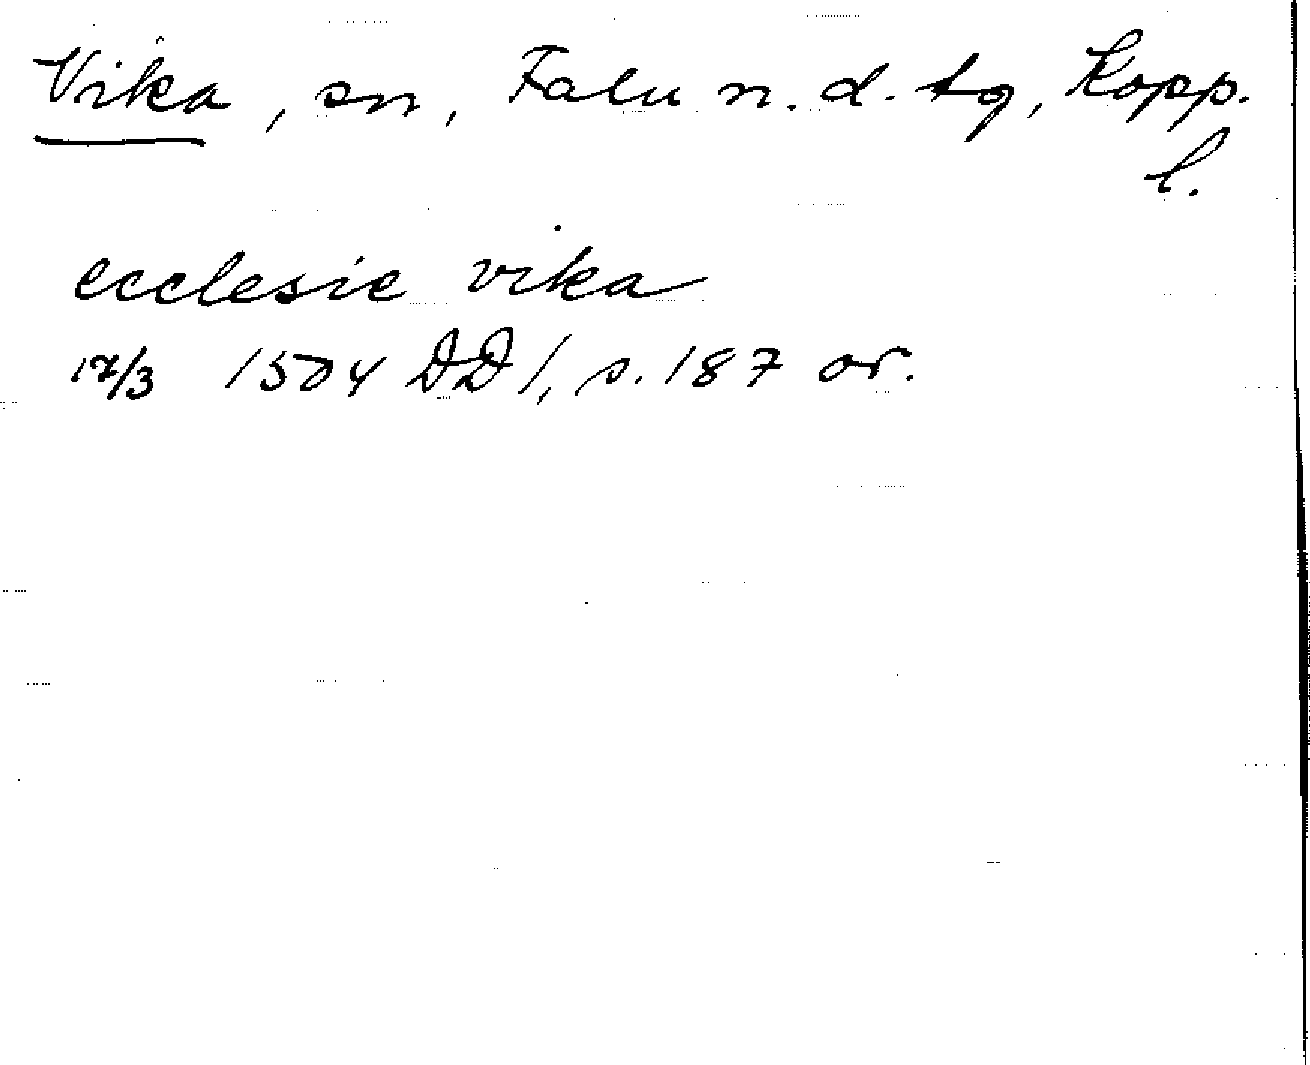 Vika, sn, Falu n. d. tg, Kopp.
l.
ecclesie vika
17/3 1504 DD 1, s. 187 or.